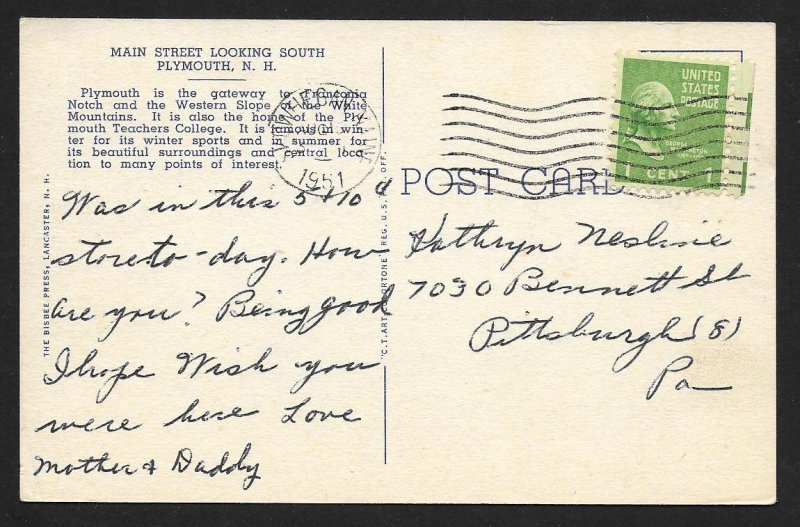 MAIN STREET LOOKING SOUTH
PLYMOUTH, N. H.
Plymouth is the gateway to Franconia
Notch and the Western Slope of the White
Mountains. It is also the home of the Ply-
mouth Teachers College. It is famous in win-
ter for its winter sports and in summer for
its beautiful surroundings and central loca-
tion to many points of interest.
1951
UNITED
STATES
POSTAGE
1 CENT 1
POST CARD
THE BISBEE PRESS, LANCASTER, N. H.
REG. U. S. PAT. OFF.
Was in this 5 & 10¢
store to-day. How
are you? Being good
I hope Wish you
were here Love
Mother & Daddy
Kathryn
7030 Bennett St
Pittsburgh (8)
Pa